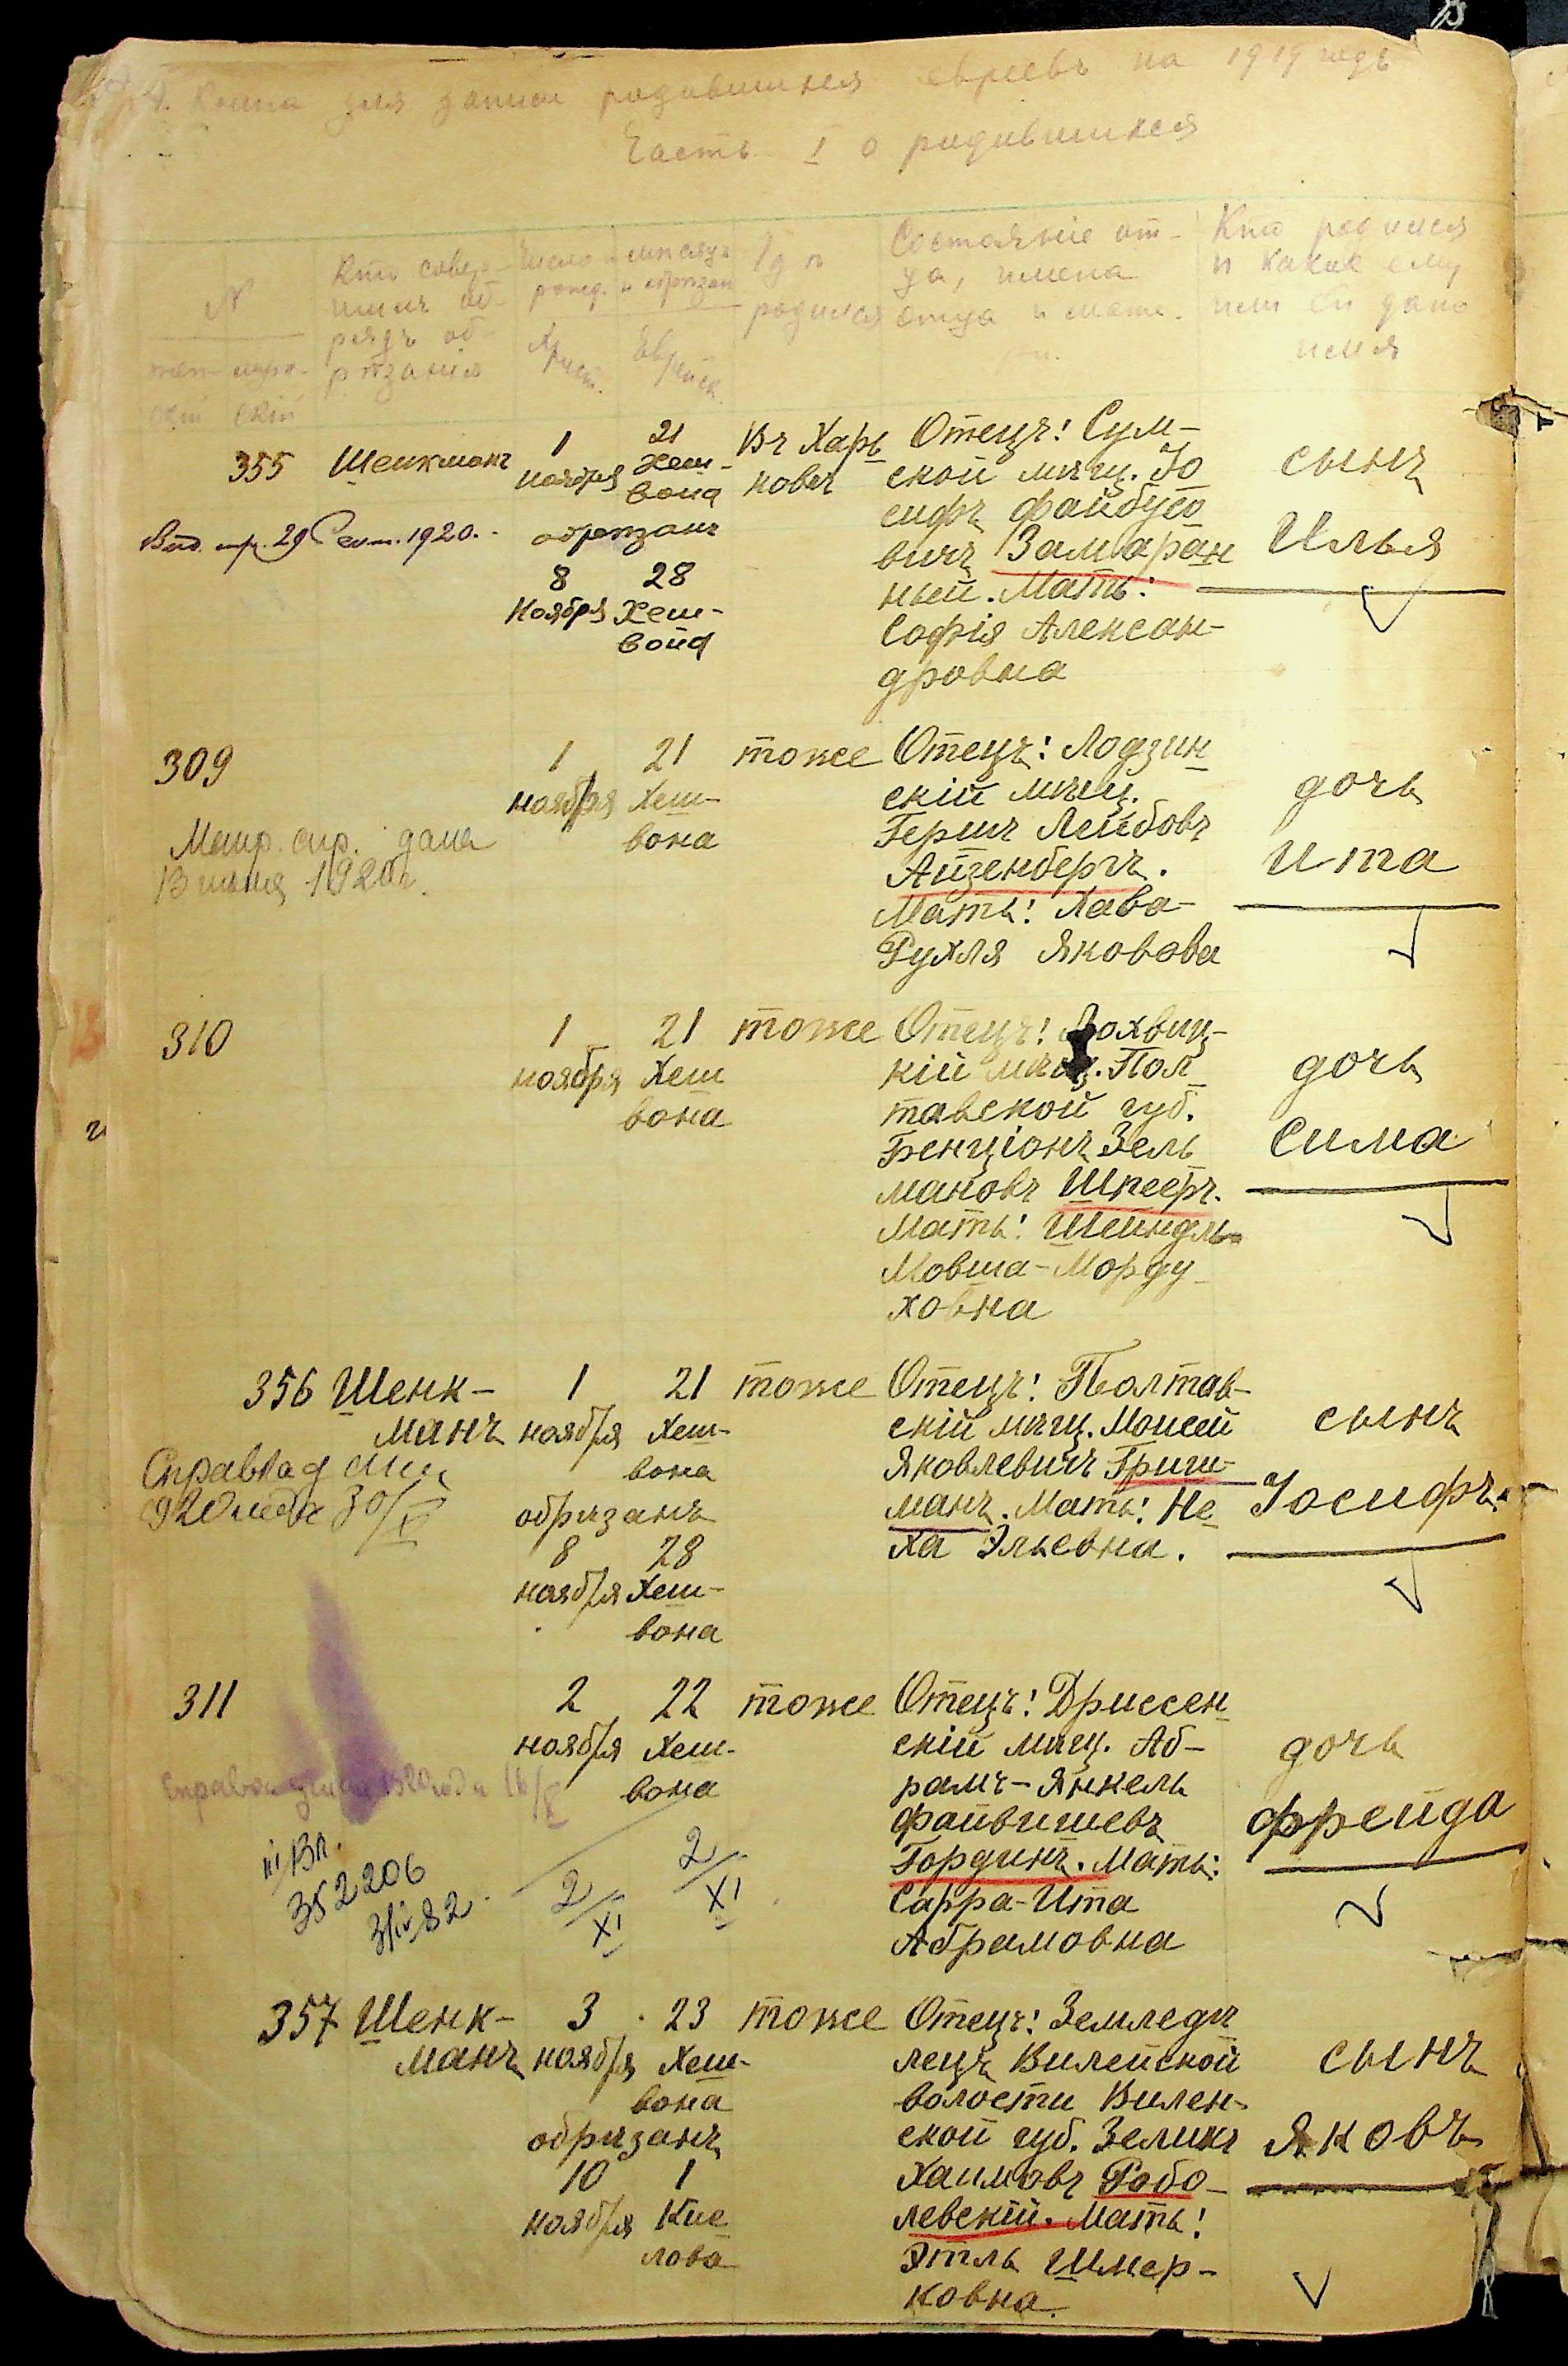 Книга для записи родившихся евреевъ на 1919 годъ
Часть I о родившихся
№
женскій мужескій
Кто совершилъ обрядъ обрѣзанія
Число и мѣсяцъ рожд. и обрѣзан
Христ. Еврейск.
Гдѣ родился
Состояніе отца, имена отца и матери.
Кто родился и какое ему или ей дано имя
355 Шенкманъ
1 ноября
21 Хешвона
обрѣзанъ
8 ноября
28 Хешвона
Въ Харьковѣ
Отецъ: Сумской мѣщ. Іосифъ Файбусовичъ Замаранный. Мать: Софія Александровна
сынъ
Илья
Выд. 29 Сент. 1920.
309
1 ноября
21 Хешвона
тоже
Отецъ: Лодзинскій мѣщ. Гершъ Лейбовъ Айзенбергъ. Мать: Хава-Рухля Яковова
дочь
Ита
Метр. спр. дана
13 1920г.
310
1 ноября
21 Хешвона
тоже
Отецъ: Лохвицкій мѣщ. Полтавской губ. Бенціонъ Зельмановъ Шпееръ. Мать: Шейндля Мовша-Мордуховна
дочь
Сима
356 Шенкманъ
1 ноября
21 Хешвона
обрѣзанъ
8 ноября
28 Хешвона
тоже
Отецъ: Полтавскій мѣщ. Моисей Яковлевичъ Гришманъ. Мать: Неха Эльевна.
сынъ
Іосифъ
Справка
311
2 ноября
22 Хешвона
тоже
Отецъ: Дриссенскій мѣщ. Абрамъ-Янкель Файвишевъ Гординъ. Мать: Сарра-Ита Абрамовна
дочь
Фрейда
Справка 1920 года
352206
2/XI
2/XI
357 Шенкманъ
3 ноября
23 Хешвона
обрѣзанъ
10 ноября
1 Кислова
тоже
Отецъ: Земледѣлецъ Вилейской волости Виленской губ. Зеликъ Хаимовъ Соболевскій. Мать: Этль Шмерковна.
сынъ
Яковъ